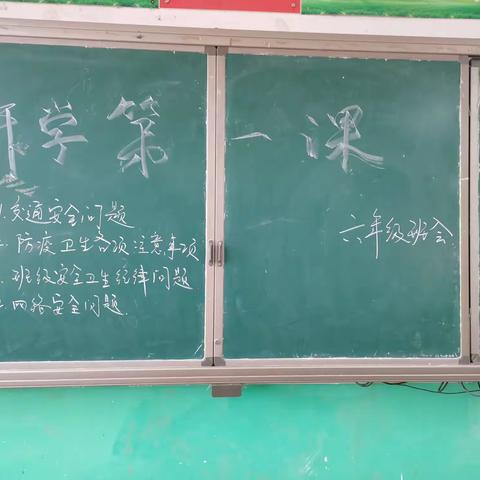 开学第一课
1.交通安全问题
防疫卫生各项注意事项
班级安全卫生纪律问题
网络安全问题.
六年级班会